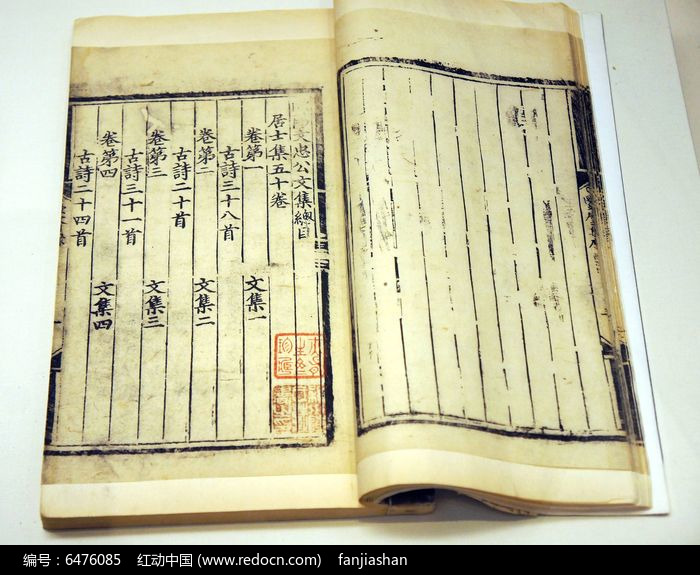 文忠公文集總目
居士集五十卷
卷第一 文集一
古詩三十八首
卷第二 文集二
古詩二十首
卷第三 文集三
古詩三十一首
卷第四 文集四
古詩二十四首
编号：6476085 红动中国 (www.redocn.com) fanjiashan